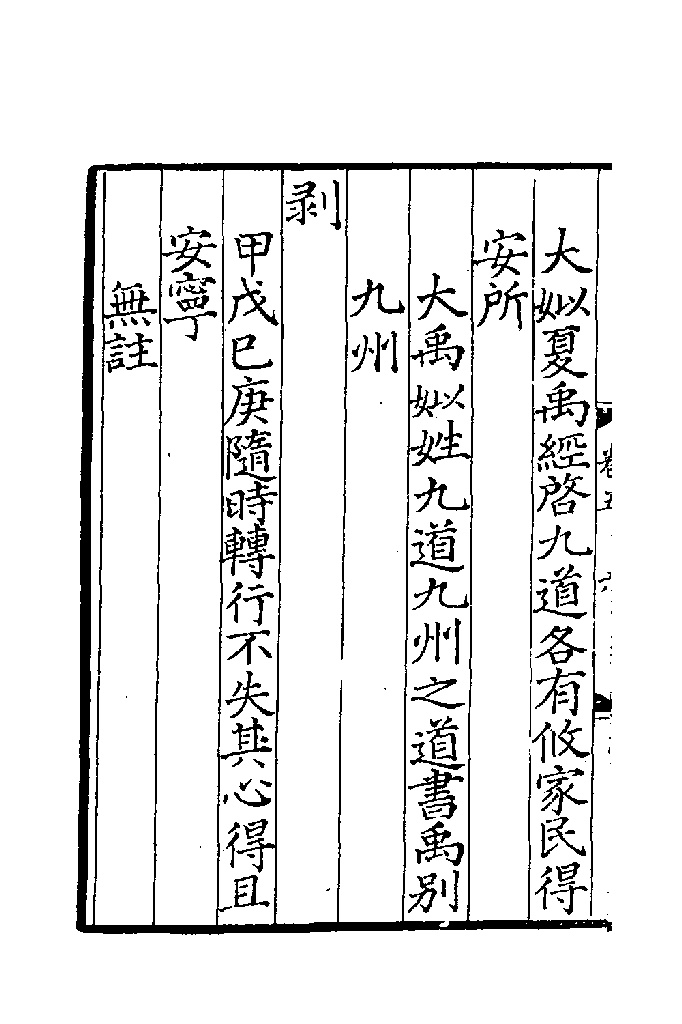 大姒夏禹經啓九道各有攸家民得
安所
大禹姒姓九道九州之道書禹別
九州
剥
甲戊已庚隨時轉行不失其心得且
安寧
無註